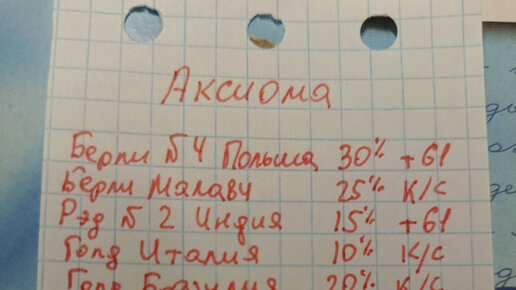 Аксиома
Берли №4 Польша 30% +61
Берли Малави 25% К/С
Рэд №2 Индия 15% +61
Голд Италия 10% К/С
Голд Бразилия 20% К/С